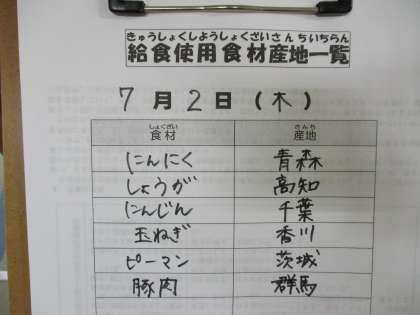 きゅうしょくしようしょくざいさんちいちらん
給食使用食材産地一覧
7月2日(木)
しょくざい さんち
食材 産地
にんにく 青森
しょうが 高知
にんじん 千葉
玉ねぎ 香川
ピーマン 茨城
豚肉 群馬